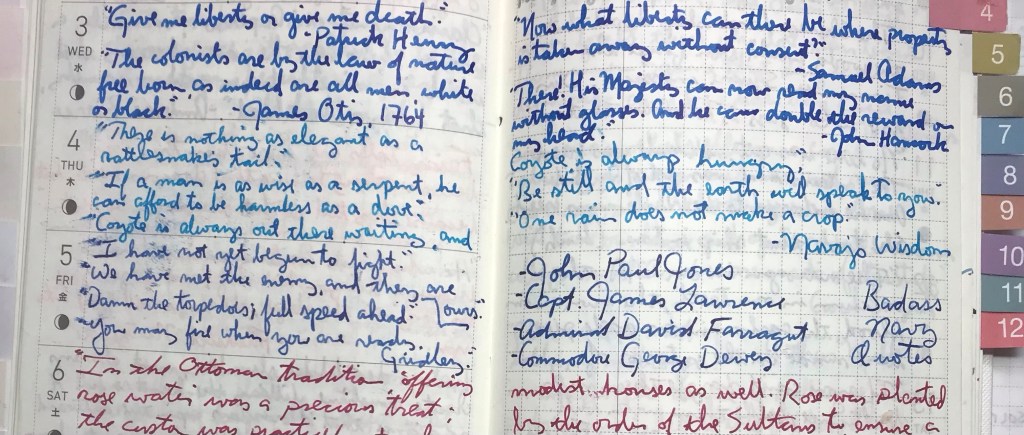 3
WED
水
"Give me liberty or give me death."
- Patrick Henry
"The colonists are by the law of nature
free born, as indeed are all men, white
or black." - James Otis, 1764
4
THU
木
"There is nothing as elegant as a
rattlesnakes tail."
"If a man is as wise as a serpent, he
can afford to be harmless as a dove."
"Coyote is always out there waiting, and
5
FRI
金
"I have not yet begun to fight."
"We have met the enemy, and they are
ours."
"Damn the torpedos; full speed ahead."
"You may fire when you are ready,
Gridley."
6
SAT
土
"In the Ottoman tradition "offering
rose water was a precious treat;
the custom was
"Now what liberty can there be where property
is taken away without consent?"
- Samuel Adams
"There! His Majesty can now read my name
without glasses. And he can double the reward on
my head." - John Hancock
Coyote is always hungry."
"Be still and the earth will speak to you."
"One rain does not make a crop."
- Navajo Wisdom
- John Paul Jones
- Capt. James Lawrence Badass
- Admiral David Farragut Navy
- Commodore George Dewey Quotes
modest houses as well. Rose was planted
by the order of the Sultans to ensure a
4
5
6
7
8
9
10
11
12